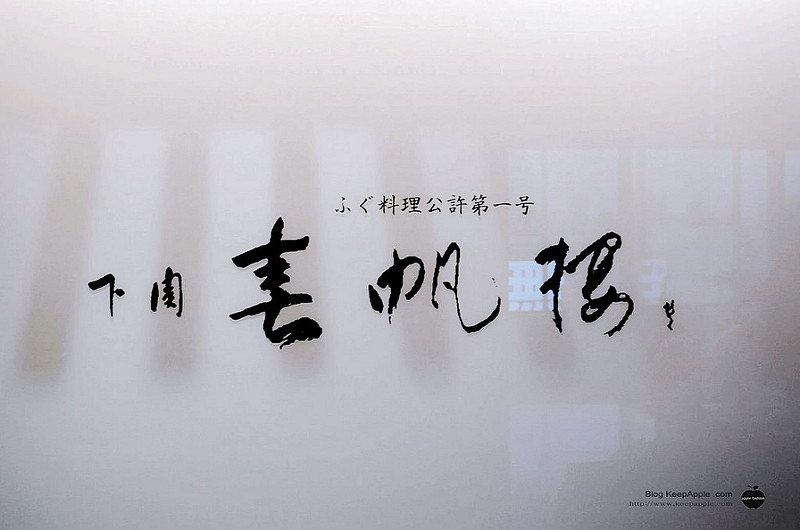 ふぐ料理公許第一号
下関 春帆楼
Blog KeepApple .com
http://www.keepapple.com